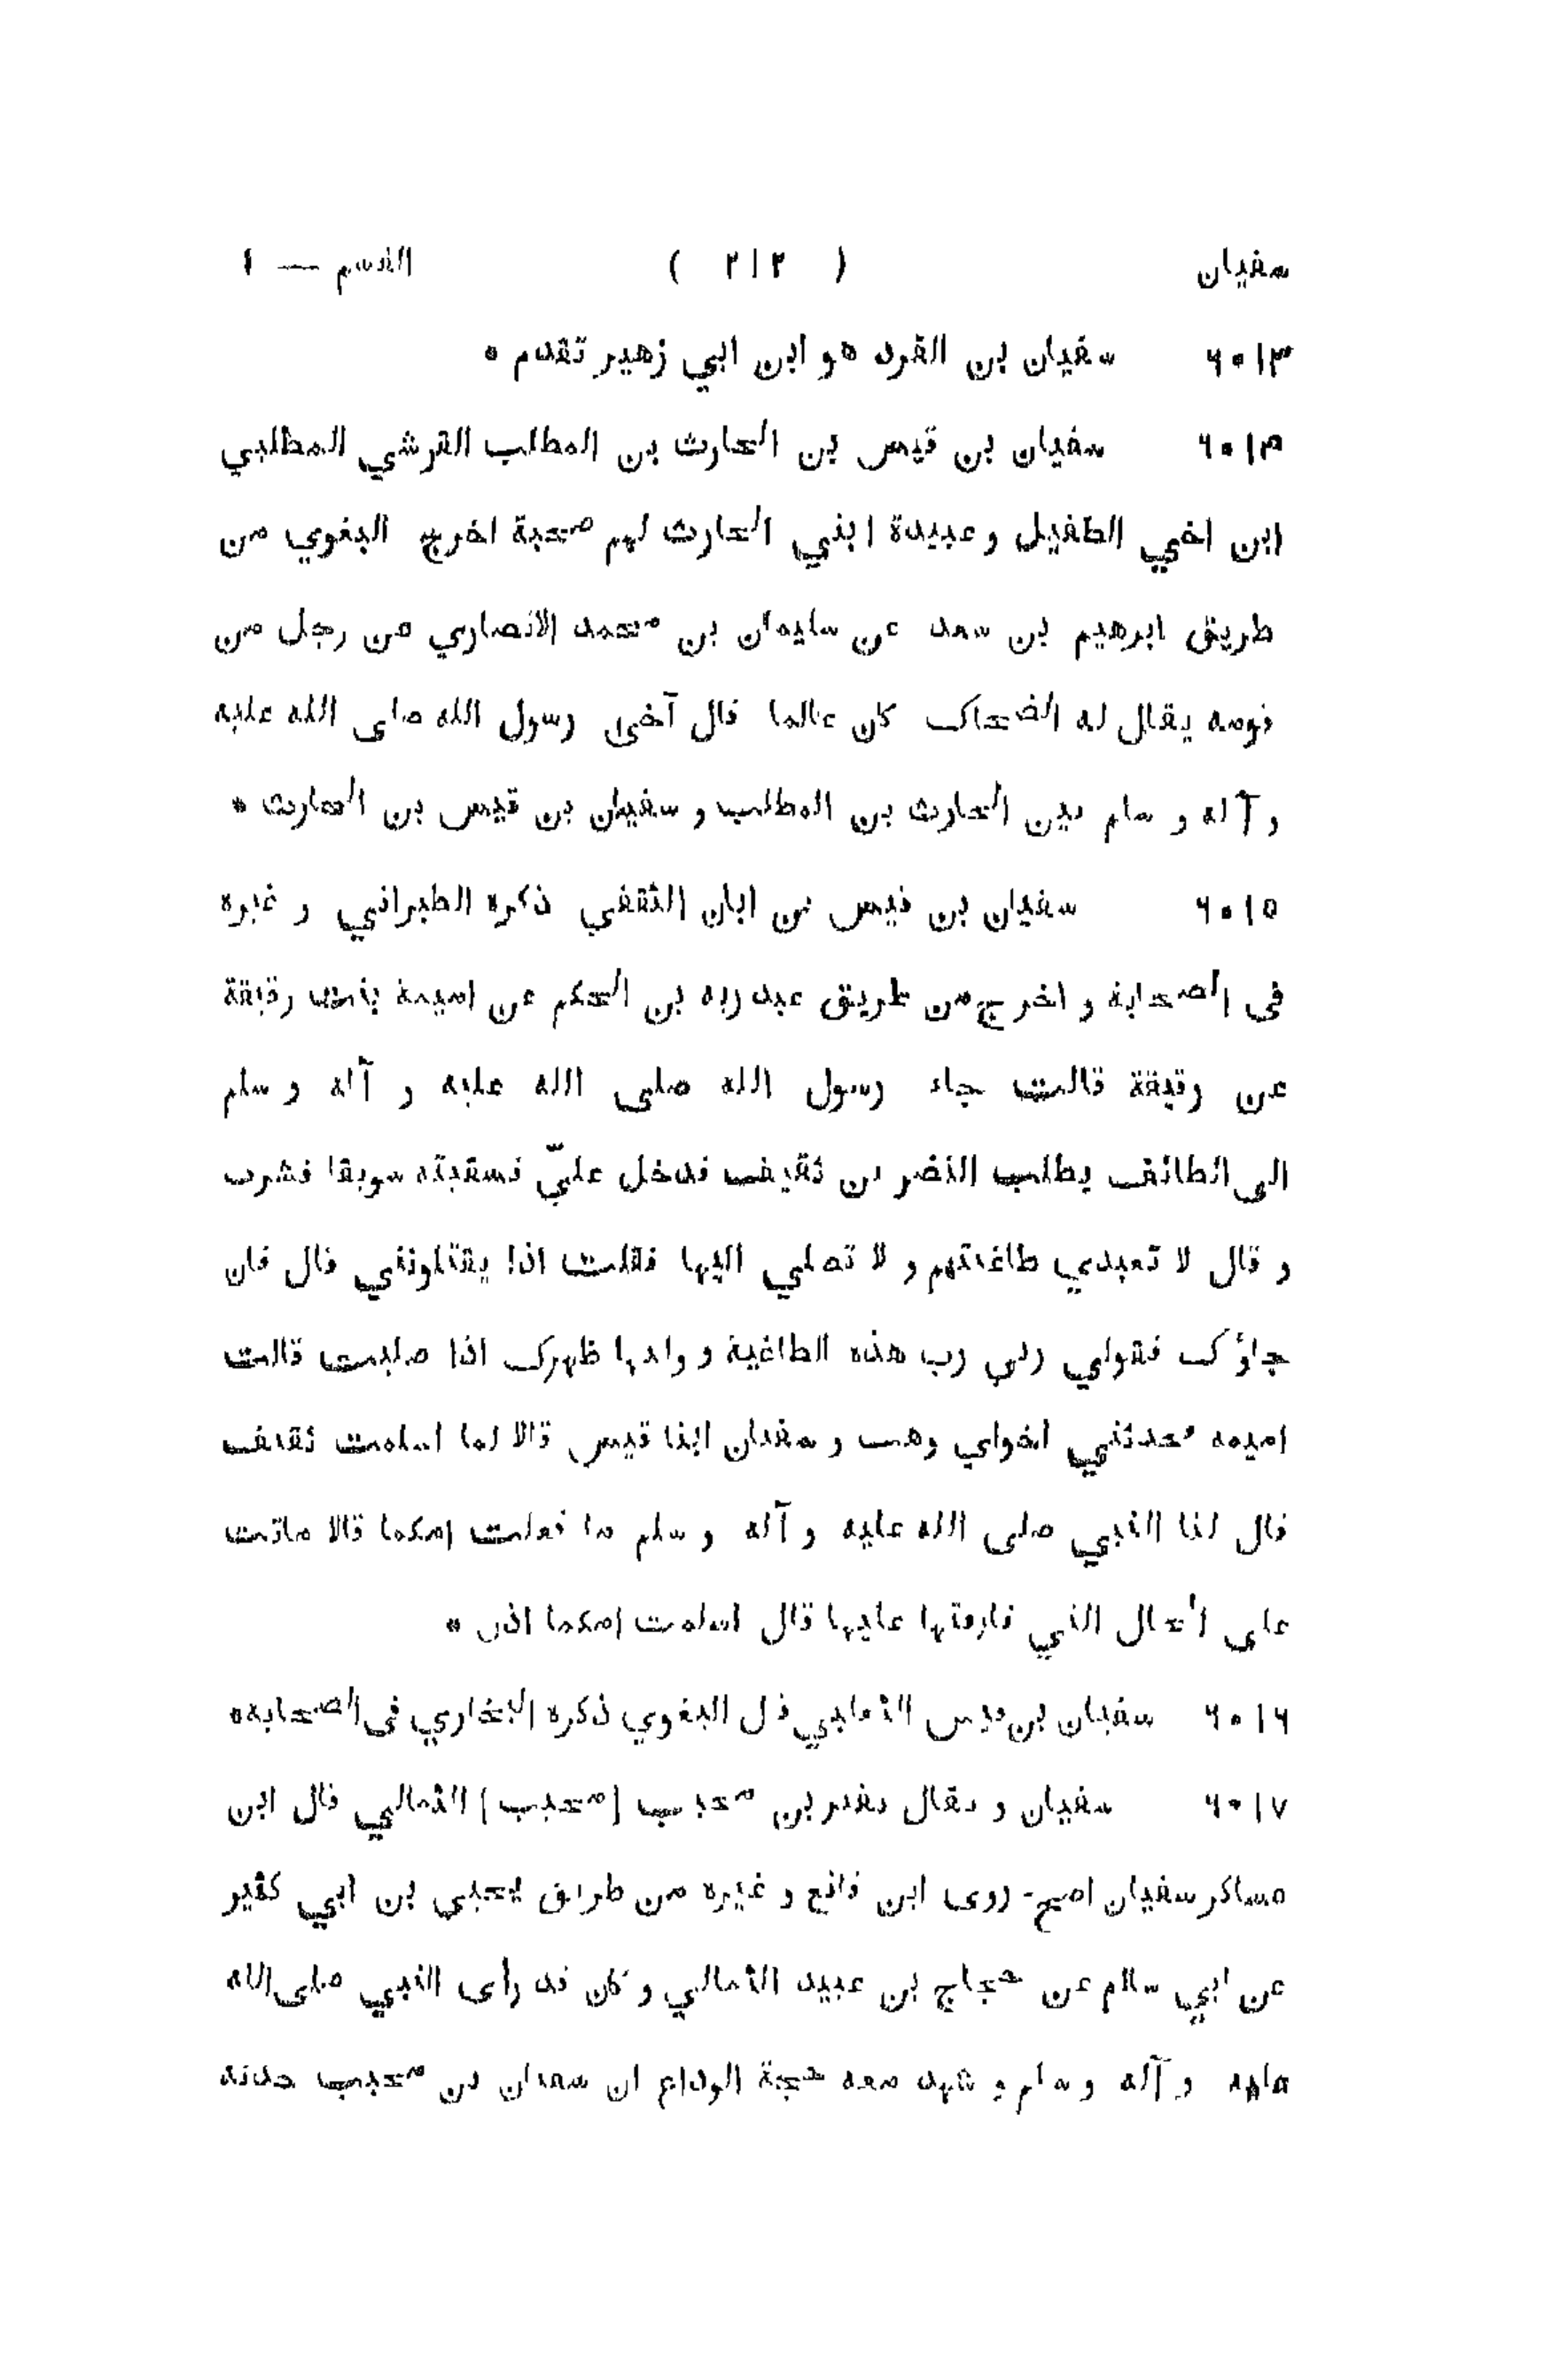 سفيان ( ٢١٢ ) القسم — ١
٦٠١٣ سفيان بن القرد هو ابن ابي زهير تقدم *
٦٠١٤ سفيان بن قيس بن الحارث بن المطلب القرشي المطلبي
ابن اخي الطفيل و عبيدة ابني الحارث لهم صحبة اخرج البغوي من
طريق ابرهيم بن سعد عن سليمان بن محمد الانصاري عن رجل من
قومه يقال له الضحاك كان عالما قال آخى رسول الله صلى الله عليه
و آله و سلم بين الحارث بن المطلب و سفيان بن قيس بن الحارث *
٦٠١٥ سفيان بن قيس بن ابان الثقفي ذكره الطبراني و غيره
فى الصحابة و اخرج من طريق عبد ربه بن الحكم عن اميمة بنت رقيقة
عن رقيقة قالت جاء رسول الله صلى الله عليه و آله و سلم
الى الطائف يطلب النصر من ثقيف فدخل عليّ فسقيته سويقا فشرب
و قال لا تعبدي طاغيتهم و لا تصلي اليها فقلت اذا يقتلونني قال فان
جاؤك فقولي ربي رب هذه الطاغية و ولدها ظهرك اذا صليت قالت
اميمه فحدثني اخواي وهب و سفيان ابنا قيس قالا لما اسلمت ثقيف
قال لنا النبي صلى الله عليه و آله و سلم ما فعلت امكما قالا ماتت
على الحال التي فارقتها عليها قال اسلمت امكما اذن *
٦٠١٦ سفيان بن قيس الثعلبي قال البغوي ذكره البخاري فى الصحابة*
٦٠١٧ سفيان و يقال نفير بن مجيب [محبب] الثمالي قال ابن
عساكر سفيان اصح - روى ابن قانع و غيره من طريق يحيى بن ابي كثير
عن ابي سلام عن حجاج بن عبيد الثمالي و كان قد رأى النبي صلى الله
عليه و آله و سلم و شهد معه حجة الوداع ان سفيان بن مجيب حدثه